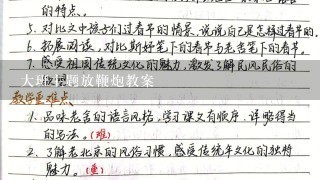 的特点。
5. 对比文中孩子们过春节的情景,说说自己是怎样过春节的。
6. 拓展阅读,对比斯妤笔下的春节与老舍笔下的春节。
7. 感受祖国传统文化的魅力,激发了解民风民俗的
大班主题放鞭炮教案
教学重难点
1. 品味老舍的语言风格,学习课文有顺序、详略得当
的写法。(难)
2. 了解老北京的风俗习惯,感受传统年文化的独特
魅力。(重)